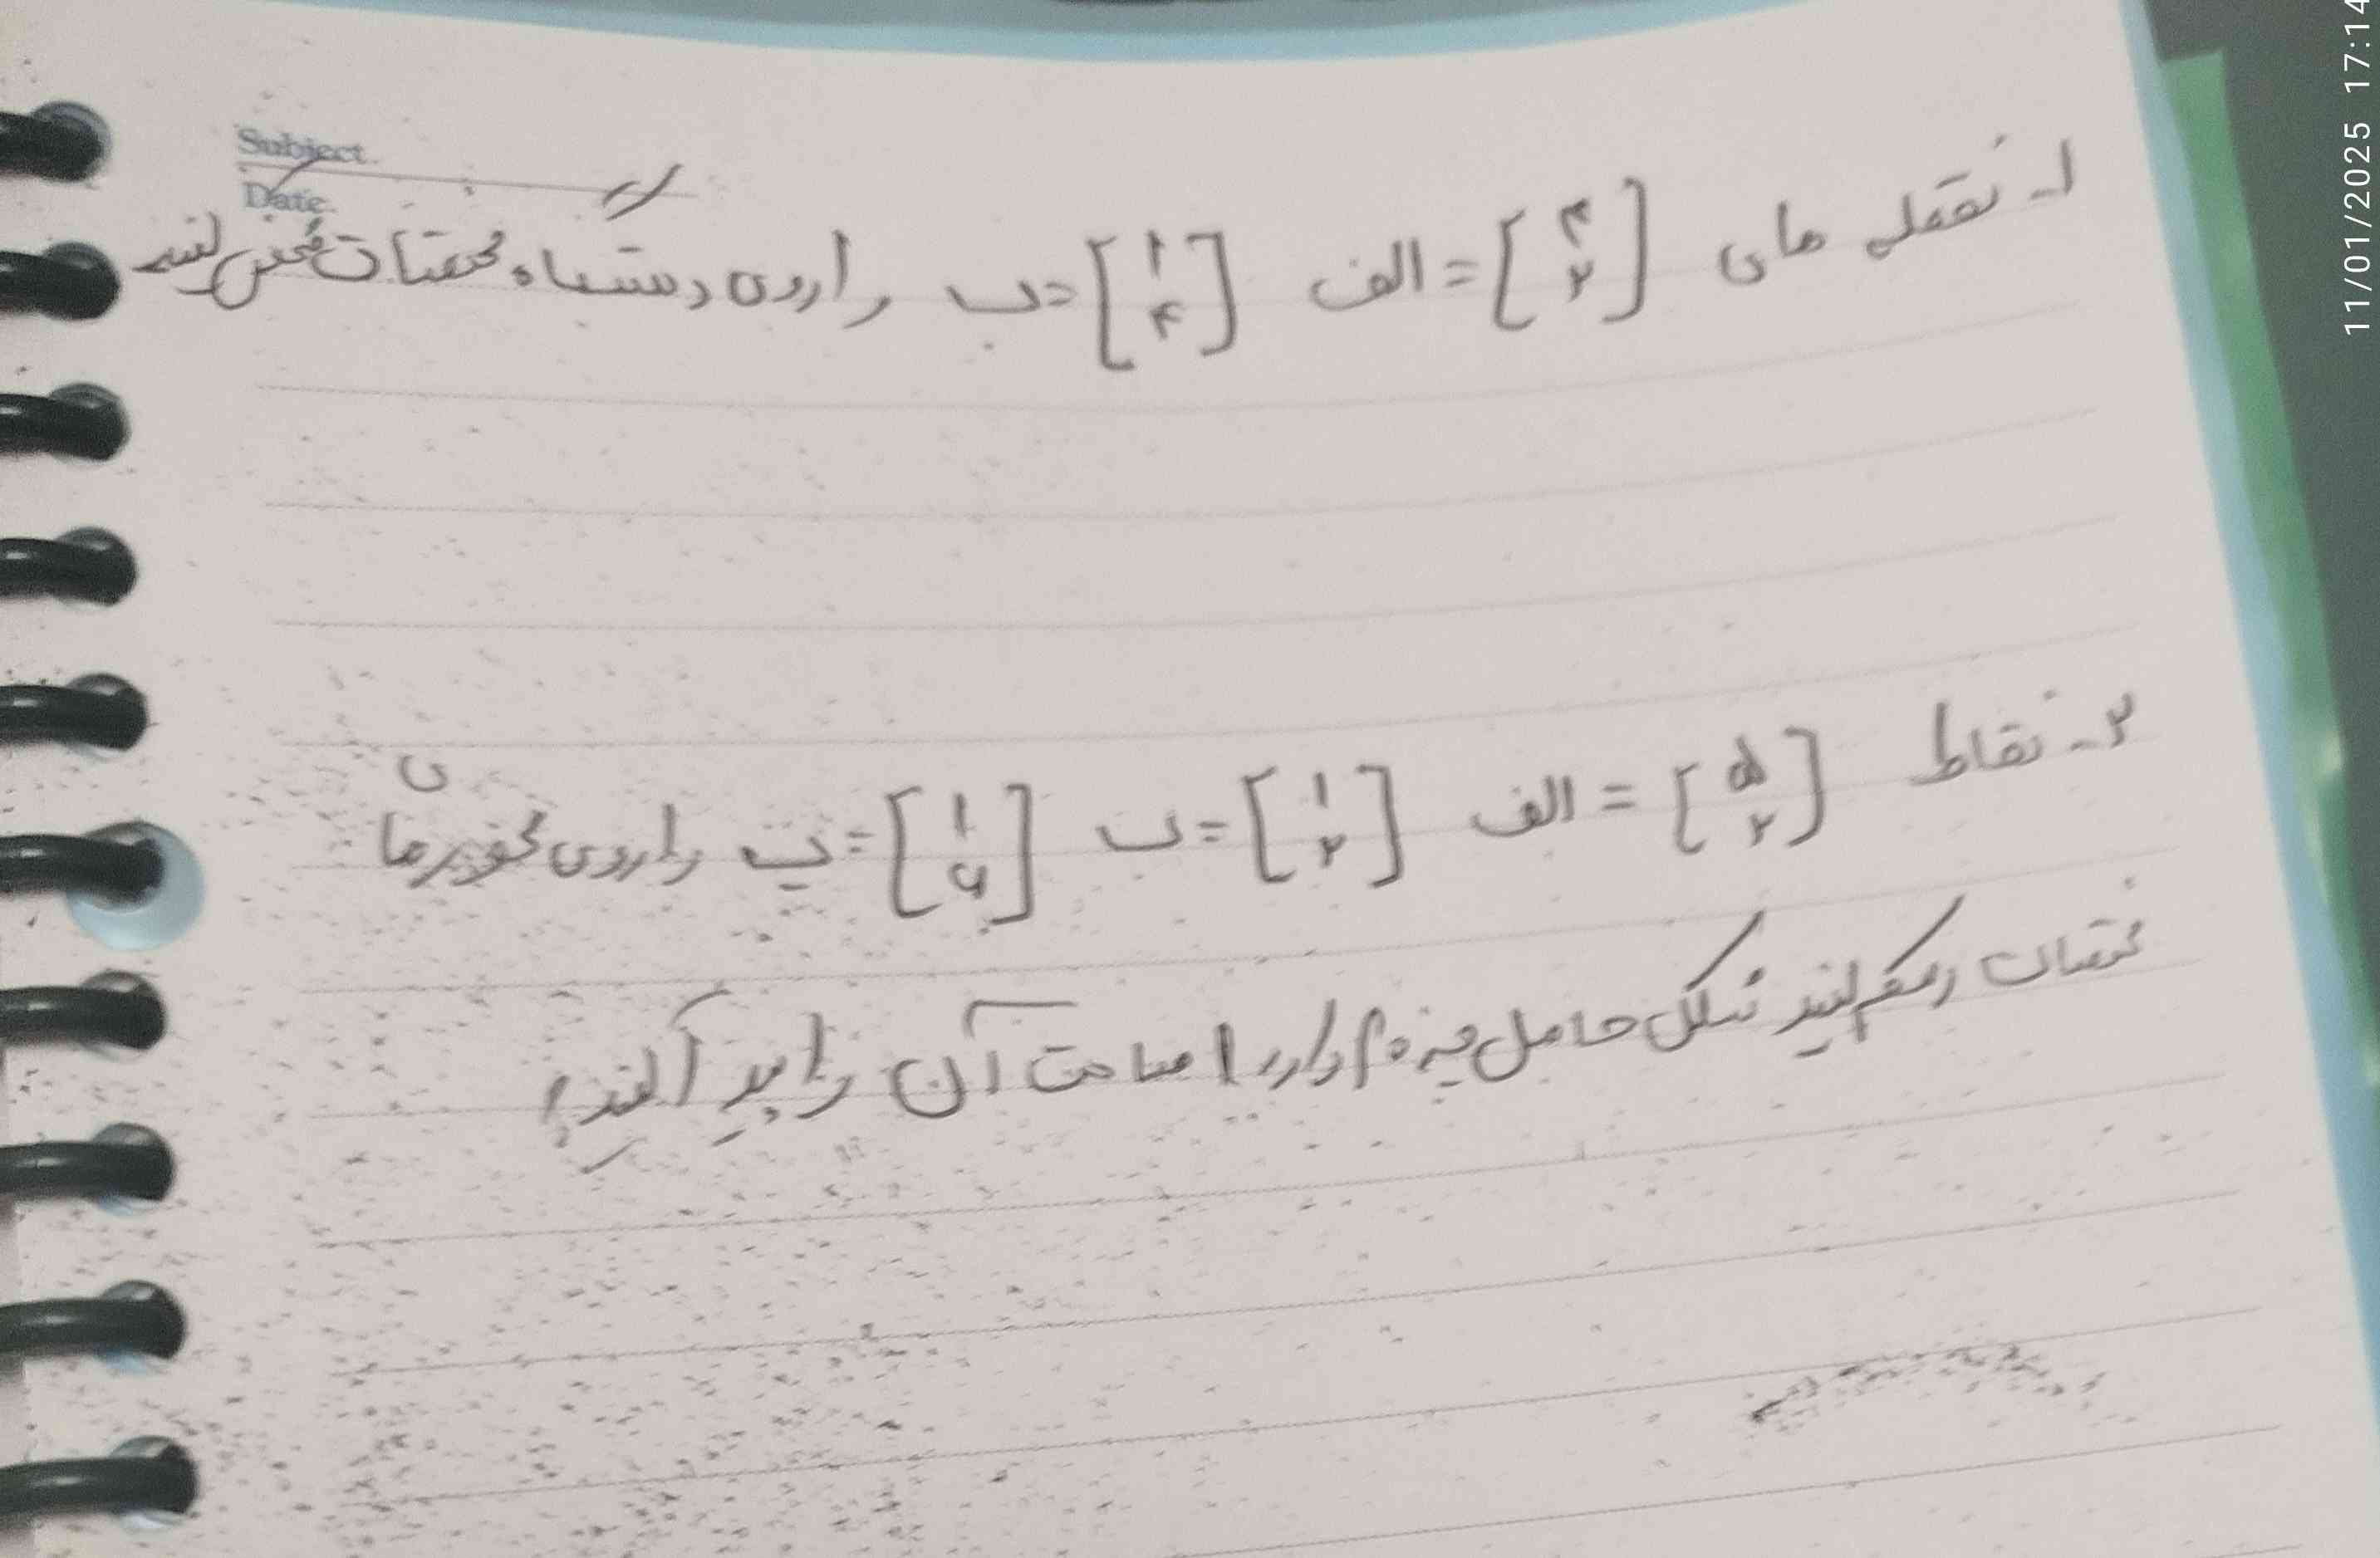 Subject.
Date.
۱ـ نقطه های [۳ ۲] = الف [۱ ۴] = ب را روی دستگاه مختصات مشخص کنید
۲ـ نقاط [۵ ۲] = الف [۱ ۲] = ب [۱ ۶] = پ را روی محورهای
مختصات رسم کنید شکل حاصل چه نام دارد مساحت آن را بدست آورید
11/01/2025 17:14